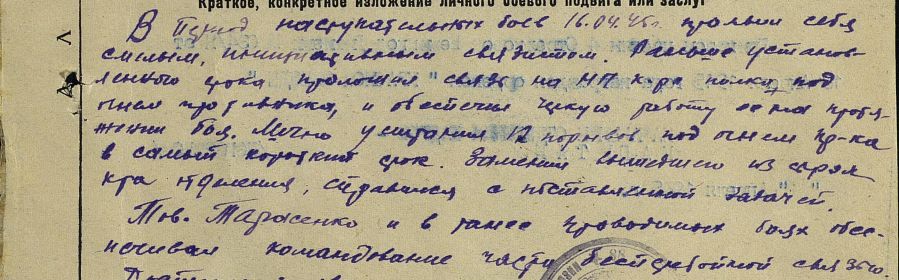 Краткое, конкретное изложение личного боевого подвига или заслуг
В период наступательных боев 16.04.45г. проявил себя
смелым, инициативным связистом. Раньше установ-
ленного срока проложил связь на НП к-ра полка, под
огнем противника, и обеспечил четкую работу ее на протя-
жении боя. Лично устранил 12 порывов под огнем пр-ка
в самый короткий срок. Заменил вышедшего из строя
к-ра отделения, справился с поставленной задачей.
Тов. Тарасенко и в ранее проводимых боях обес-
печивал командование части бесперебойной связью.